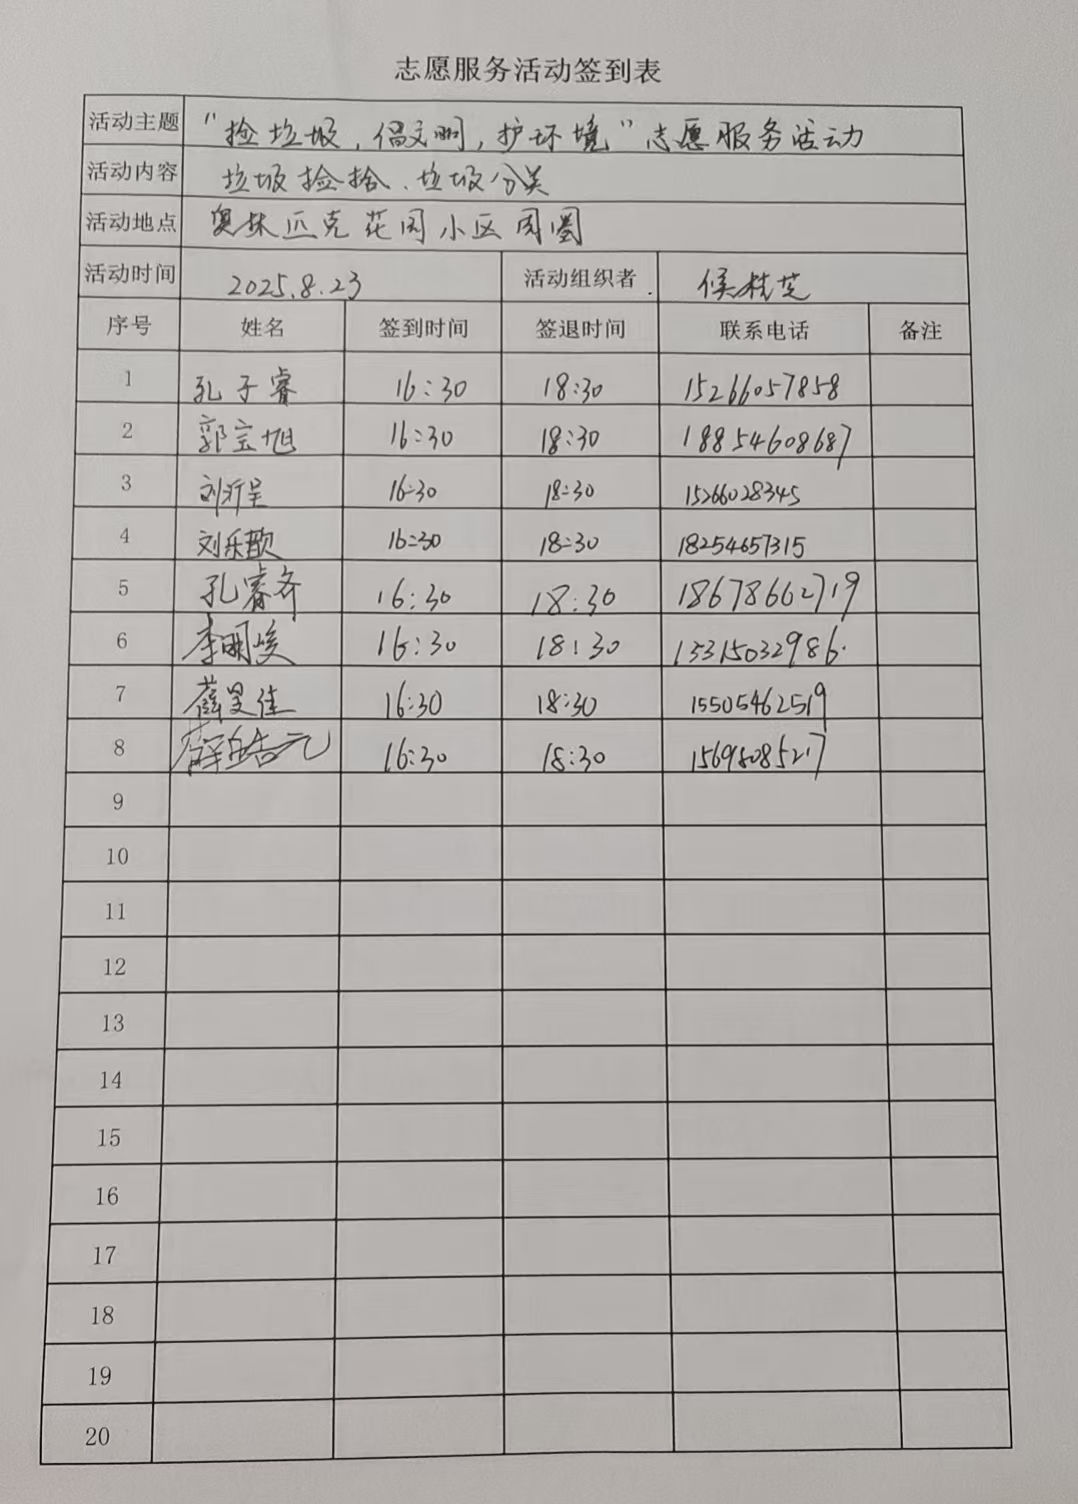 志愿服务活动签到表
活动主题 "捡垃圾,倡文明,护环境"志愿服务活动
活动内容 垃圾捡拾、垃圾分类
活动地点 奥林匹克花园小区周圈
活动时间 2025.8.23 活动组织者 侯桂芝
序号 姓名 签到时间 签退时间 联系电话 备注
1 孔子睿 16:30 18:30 15266057858
2 郭宝旭 16:30 18:30 18854608687
3 刘沂呈 16:30 18:30 15266028345
4 刘乐歆 16:30 18:30 18254657315
5 孔睿齐 16:30 18:30 18678662719
6 李明峻 16:30 18:30 15315032986.
7 薛昊佳 16:30 18:30 15505462519
8 薛皓元 16:30 18:30 15695085217
9
10
11
12
13
14
15
16
17
18
19
20